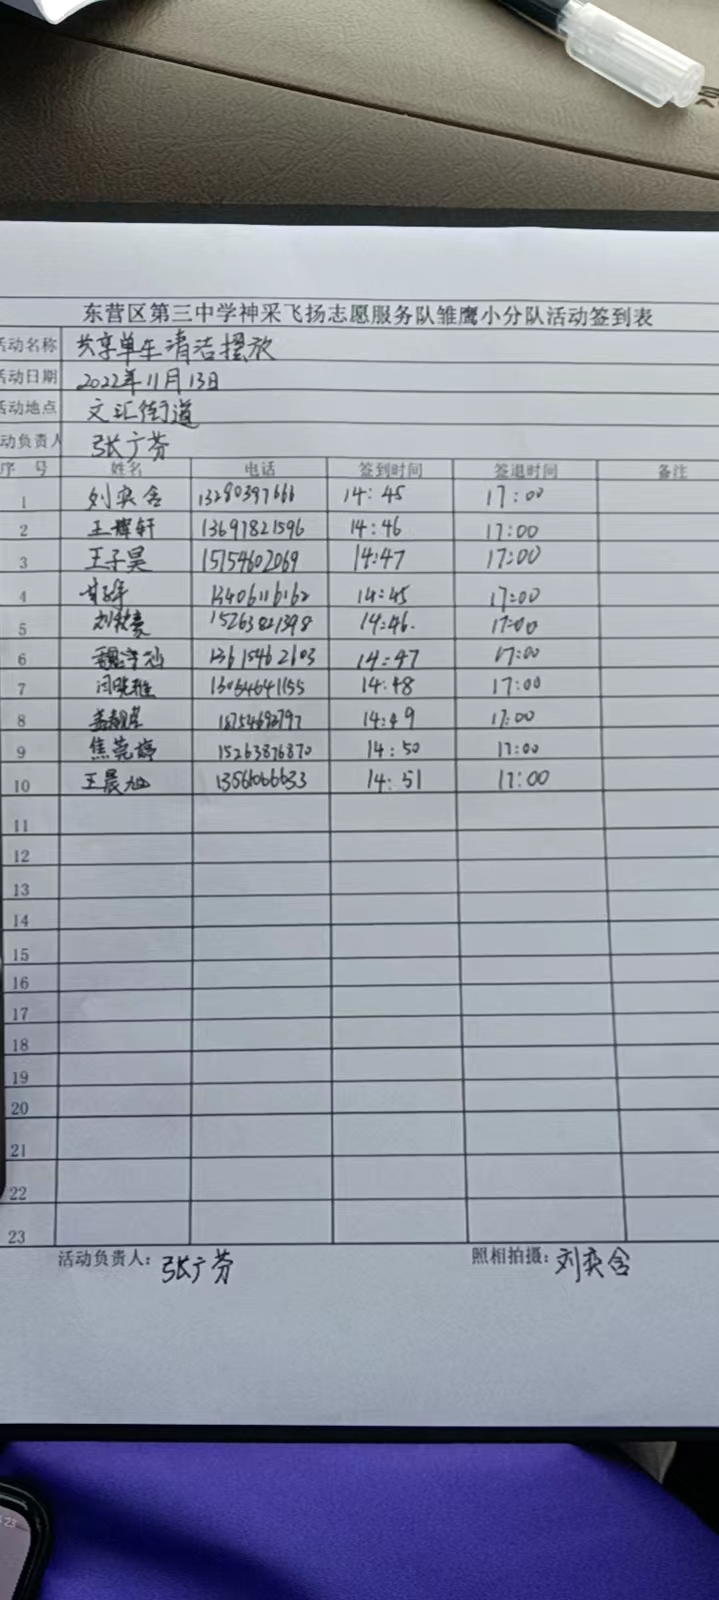 东营区第三中学神采飞扬志愿服务队雏鹰小分队活动签到表
活动名称 共享单车清洁摆放
活动日期 2022年11月13日
活动地点 文汇街道
动负责人 张广芬
序号 姓名 电话 签到时间 签退时间 备注
1 刘奕含 13280397666 14:45 17:00
2 王辉轩 13697821596 14:46 17:00
3 王子昊 15154602069 14:47 17:00
4 13406116162 14:45 17:00
5 15263821398 14:46. 17:00
6 13615462603 14:47 17:00
7 闫晓雅 13064641155 14:48 17:00
8 18754692797 14:49 17:00
9 焦莞婷 15263876870 14:50 17:00
10 王晨旭 13561066633 14:51 17:00
11
12
13
14
15
16
17
18
19
20
21
22
23
活动负责人: 张广芬 照相拍摄: 刘奕含